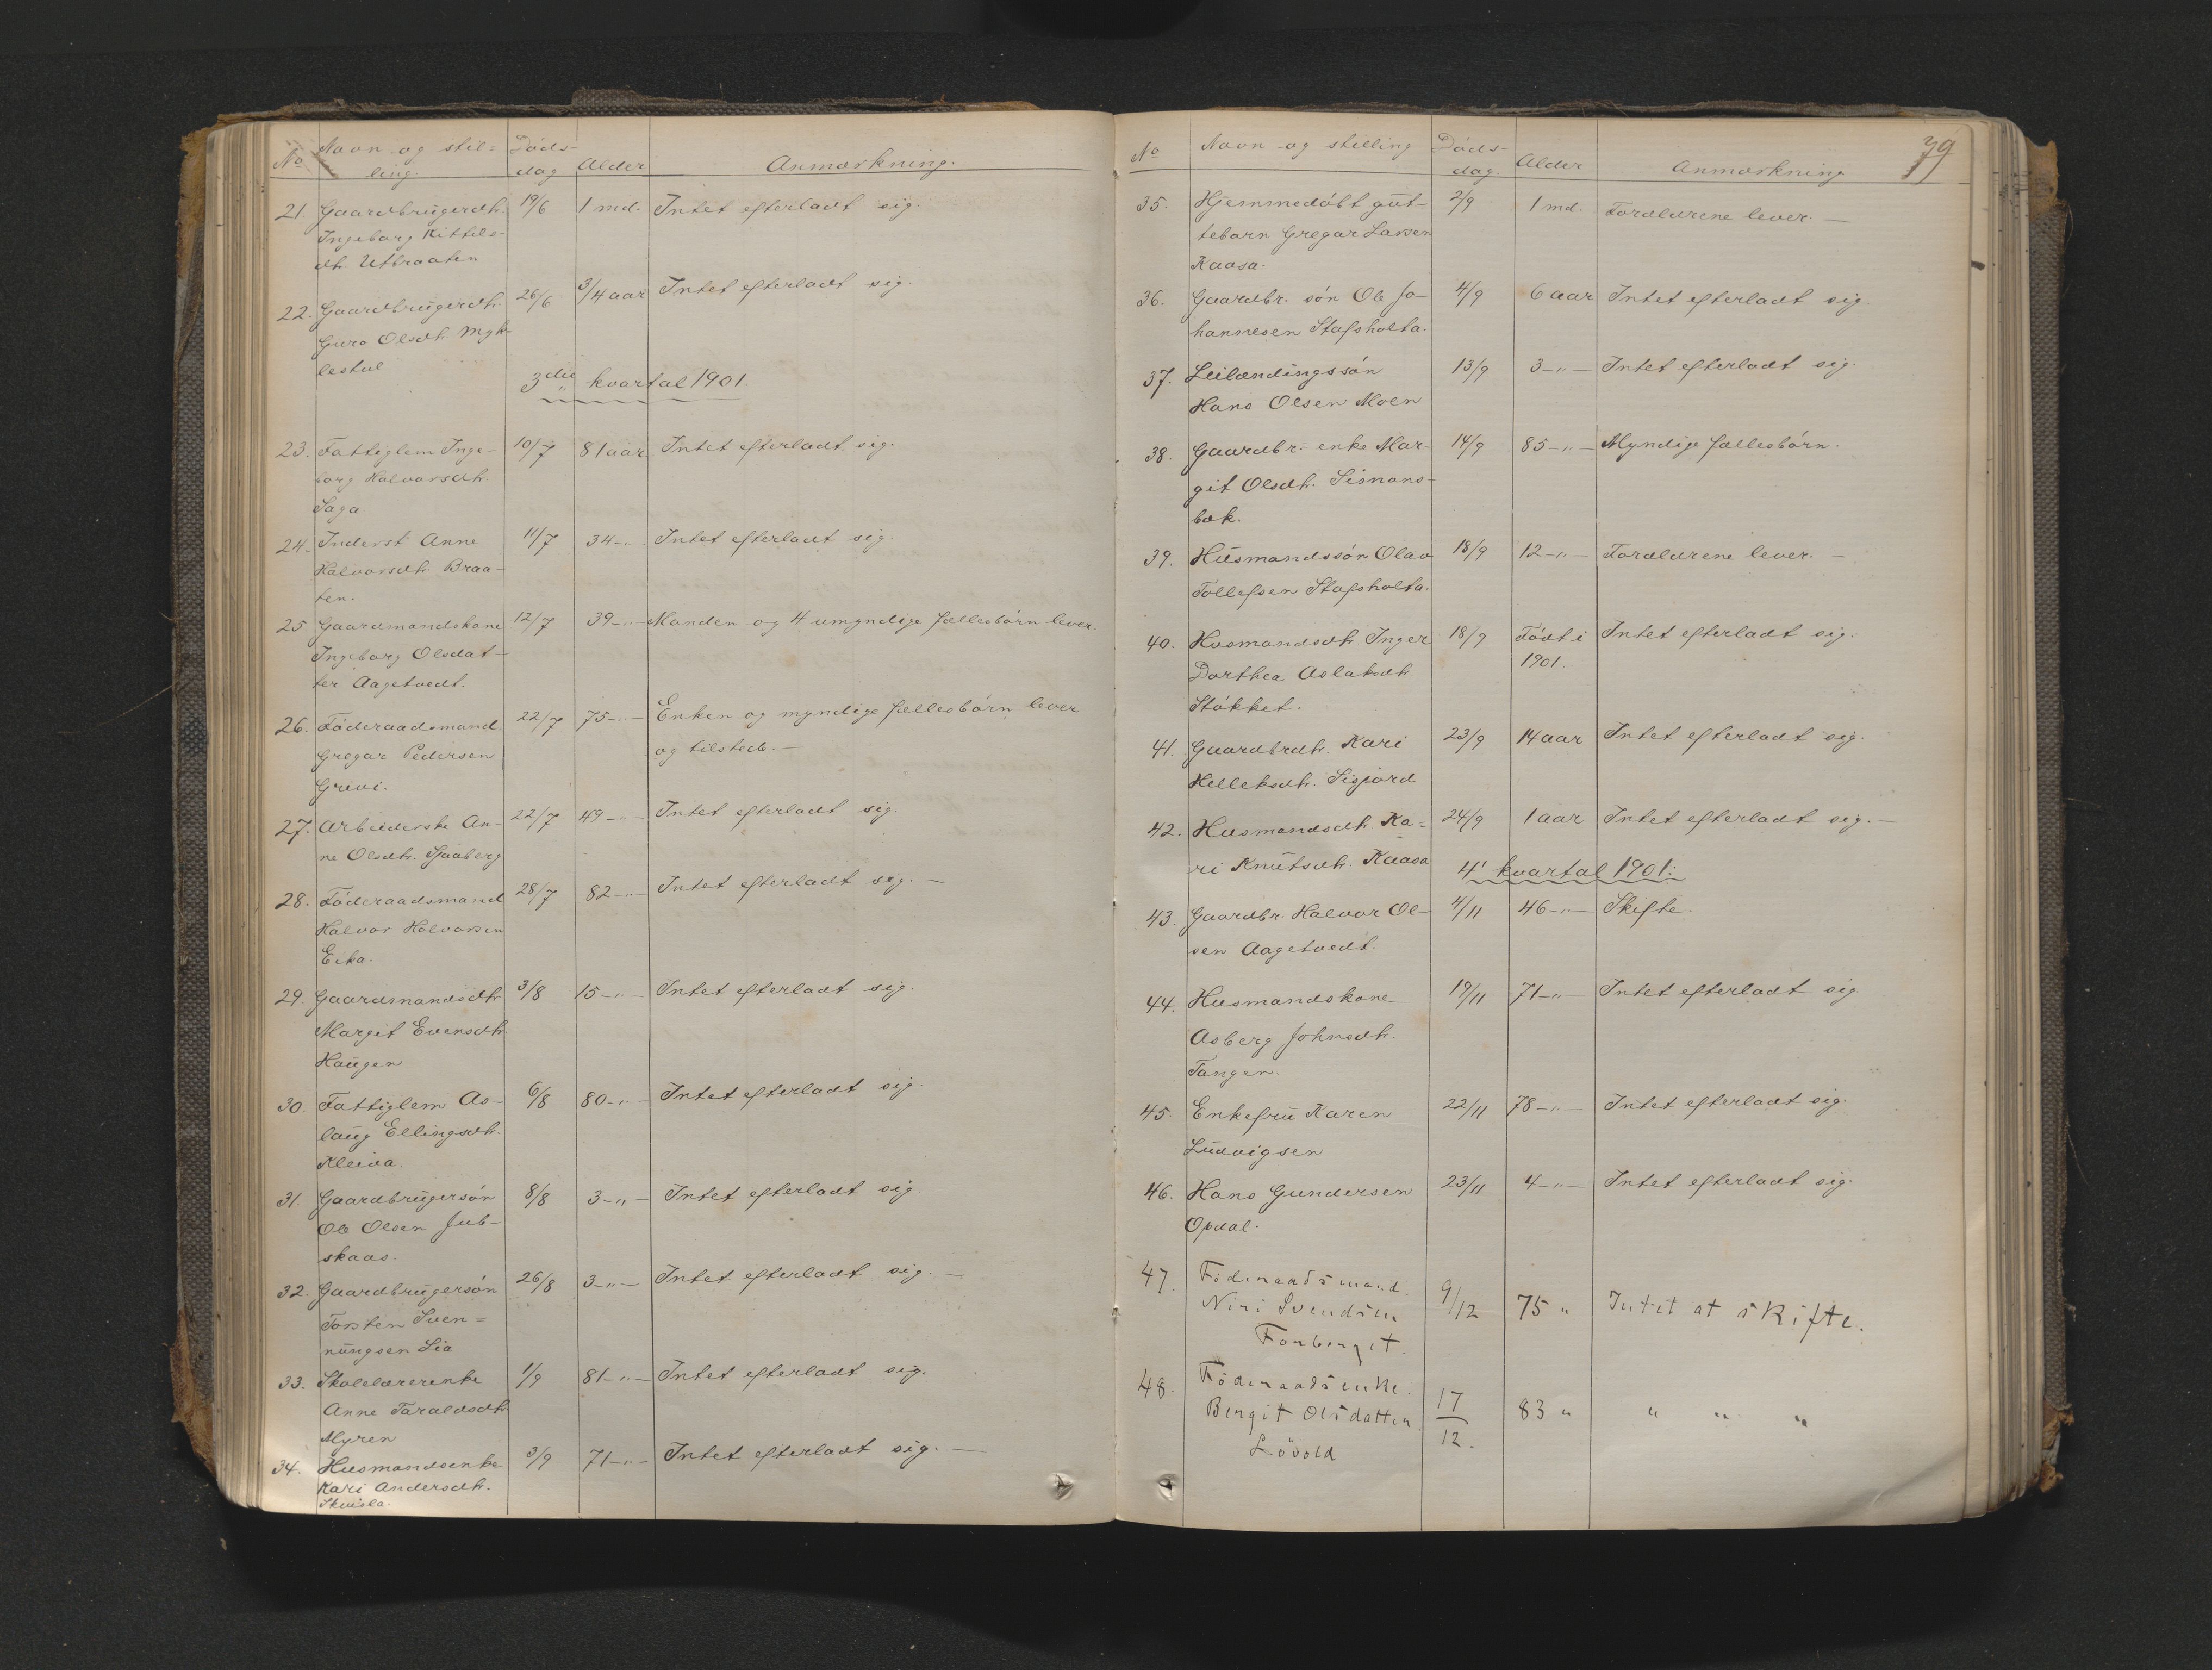 No Navn og stil= Döds- Alder Anmærkning.
ling. dag
21. Gaardbrugerdtr. 19/6 1 md. Intet efterladt sig.
Ingeborg Kittels-
dtr. Utbraaten
22. Gaardbrugerdtr. 26/6 3/4 aar Intet efterladt sig.
Guro Olsdtr. Myk-
lestul
3die kvartal 1901.
23. Fattiglem Inge- 10/7 81 aar Intet efterladt sig.
borg Halvorsdtr.
Saga
24. Inderst Anne 11/7 34 -"- Intet efterladt sig.
Halvorsdtr. Braa-
ten.
25 Gaardmandskone 12/7 39 -"- Manden og 4 umyndige fællesbörn lever.
Ingeborg Olsdat-
ter Aagetvedt.
26. Föderaadsmand 22/7 75 -"- Enken og myndige fællesbörn lever
Gregar Pedersen og tilstede. -
Grivi.
27. Arbeiderske An- 22/7 49 -"- Intet efterladt sig.
ne Olsdtr. Tjaaberg
28. Föderaadsmand 28/7 82 -"- Intet efterladt sig. -
Halvor Halvorsen
Eika.
29. Gaardmandsdtr 3/8 15 -"- Intet efterladt sig.
Margit Evensdtr.
Haugen
30. Fattiglem As- 6/8 80 -"- Intet efterladt sig.
laug Ellingsdtr.
Kleiva.
31. Gaardbrugersön 8/8 3 -"- Intet efterladt sig.
Ole Olsen Jub-
skaas.
32. Gaardbrugersön 26/8 3 -"- Intet efterladt sig. -
Torsten Sven=
nungsen Lia
33. Skolelærerenke 1/9 81 -"- Intet efterladt sig.
Anne Taraldsdtr.
Myren
34. Husmandsenke 3/9 71 -"- Intet efterladt sig. -
Kari Andersdtr.
39
No Navn og stilling Döds- Alder Anmærkning
dag.
35. Hjemmedöbt gut- 2/9 1 md. Forældrene lever. -
tebarn Gregar Larsen
Kaasa.
36. Gaardbr. sön Ole Jo- 4/9 6 aar Intet efterladt sig.
hannesen Stafsholta.
37. Leilændingssön 13/9 3 -"- Intet efterladt sig.
Hans Olsen Moen
38. Gaardbr.= enke Mar- 14/9 85 -"- Myndige fællesbörn.
git Olsdtr. Sismans-
bæk.
39. Husmandssön Olav 18/9 12 -"- Forældrene lever. -
Tollefsen Stafsholta.
40. Husmandsdtr. Inger 18/9 Födt i Intet efterladt sig.
Dorthea Aslaksdtr. 1901.
Stökket.
41. Gaardbrdtr. Kari 23/9 14 aar Intet efterladt sig.
Helleksdtr. Sisjord
42. Husmandsdtr. Ka- 24/9 1 aar Intet efterladt sig. -
ri Knutsdtr. Kaasa
4' kvartal 1901:
43. Gaardbr. Halvor Ol- 4/11 46 -"- Skifte.
sen Aagetvedt.
44. Husmandskone 19/11 71 -"- Intet efterladt sig.
Asberg Johnsdtr.
Tangen.
45. Enkefru Karen 22/11 78 -"- Intet efterladt sig.
Ludvigsen
46. Hans Gundersen 23/11 4 -"- Intet efterladt sig.
Opdal.
47. Föderaadsmand
Niri Svendsen 9/12 75 " Intet at skifte.
Forberget.
48. Föderaadsenke.
Bergit Olsdatter 17/12. 83 " " " "
Lövold